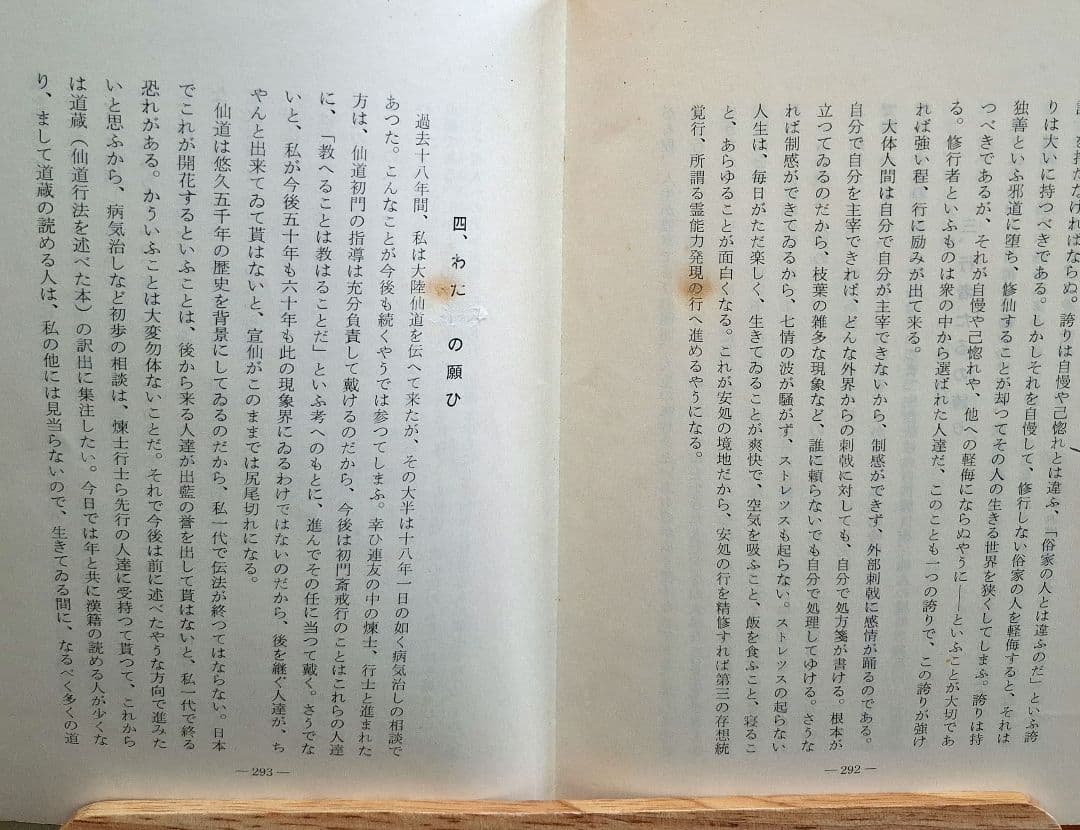 を持たなければならぬ。誇りは自慢や己惚れとは違ふ、「俗家の人とは違ふのだ」といふ誇
りは大いに持つべきである。しかしそれを自慢して、修行しない俗家の人を軽侮すると、それは
独善といふ邪道に堕ち、修仙することが却つてその人の生きる世界を狭くしてしまふ。誇りは持
つべきであるが、それが自慢や己惚れや、他への軽侮にならぬやうに――といふことが大切であ
る。修行者といふものは衆の中から選ばれた人達だ、このことも一つの誇りで、この誇りが強け
れば強い程、行に励みが出て来る。
大体人間は自分で自分が主宰できないから、制感ができず、外部刺戟に感情が踊るのである。
自分で自分を主宰できれば、どんな外界からの刺戟に対しても、自分で処方箋が書ける。根本が
立つてゐるのだから、枝葉の雑多な現象など、誰に頼らないでも自分で処理してゆける。さうな
れば制感ができてゐるから、七情の波が騒がず、ストレツスも起らない。ストレツスの起らない
人生は、毎日がただ楽しく、生きてゐることが爽快で、空気を吸ふこと、飯を食ふこと、寝るこ
と、あらゆることが面白くなる。これが安処の境地だから、安処の行を精修すれば第三の存想統
覚行、所謂る霊能力発現の行へ進めるやうになる。
―292―
四、わたしの願ひ
過去十八年間、私は大陸仙道を伝へて来たが、その大半は十八年一日の如く病気治しの相談で
あつた。こんなことが今後も続くやうでは参つてしまふ。幸ひ連友の中の煉士、行士と進まれた
方は、仙道初門の指導は充分負責して戴けるのだから、今後は初門斎戒行のことはこれらの人達
に、「教へることは教はることだ」といふ考へのもとに、進んでその任に当つて戴く。さうでな
いと、私が今後五十年も六十年も此の現象界にゐるわけではないのだから、後を継ぐ人達が、ち
やんと出来てゐて貰はないと、宣仙がこのままでは尻尾切れになる。
仙道は悠久五千年の歴史を背景にしてゐるのだから、私一代で伝法が終つてはならない。日本
でこれが開花するといふことは、後から来る人達が出藍の誉を出して貰はないと、私一代で終る
恐れがある。かういふことは大変勿体ないことだ。それで今後は前に述べたやうな方向で進みた
いと思ふから、病気治しなど初歩の相談は、煉士行士ら先行の人達に受持つて貰つて、これから
は道蔵（仙道行法を述べた本）の訳出に集注したい。今日では年と共に漢籍の読める人が少くな
り、まして道蔵の読める人は、私の他には見当らないので、生きてゐる間に、なるべく多くの道
―293―